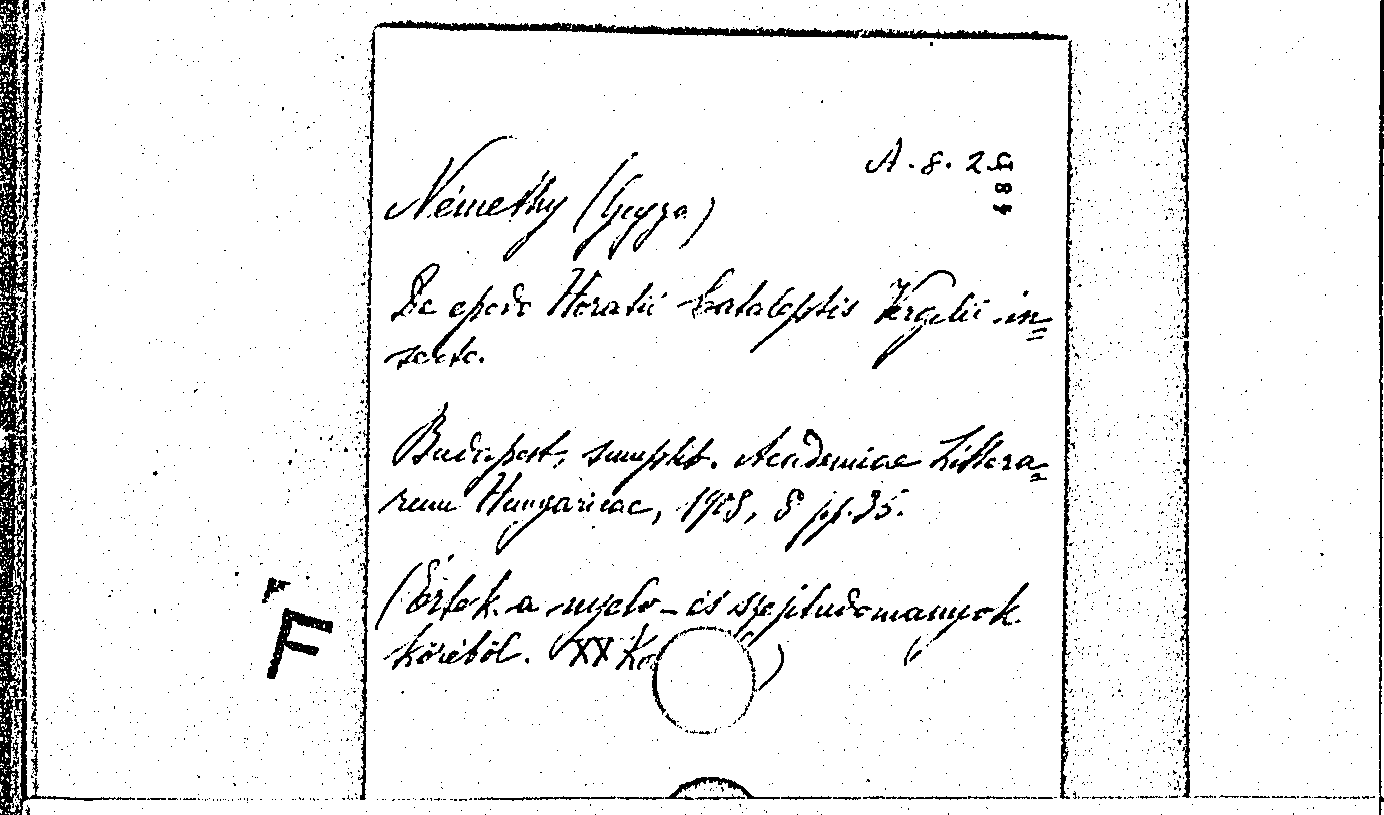 A. 8. 25
48
Némethy (Geyza)
De epodo Horatii Cataleptis Vergilii in=
serto.
Budapest, sumptib. Academiae Littera=
rum Hungaricae, 1908, 8 pp. 35.
(Értek. a nyelv- és szépitudomanyok
köréböl. XX Kö )
F